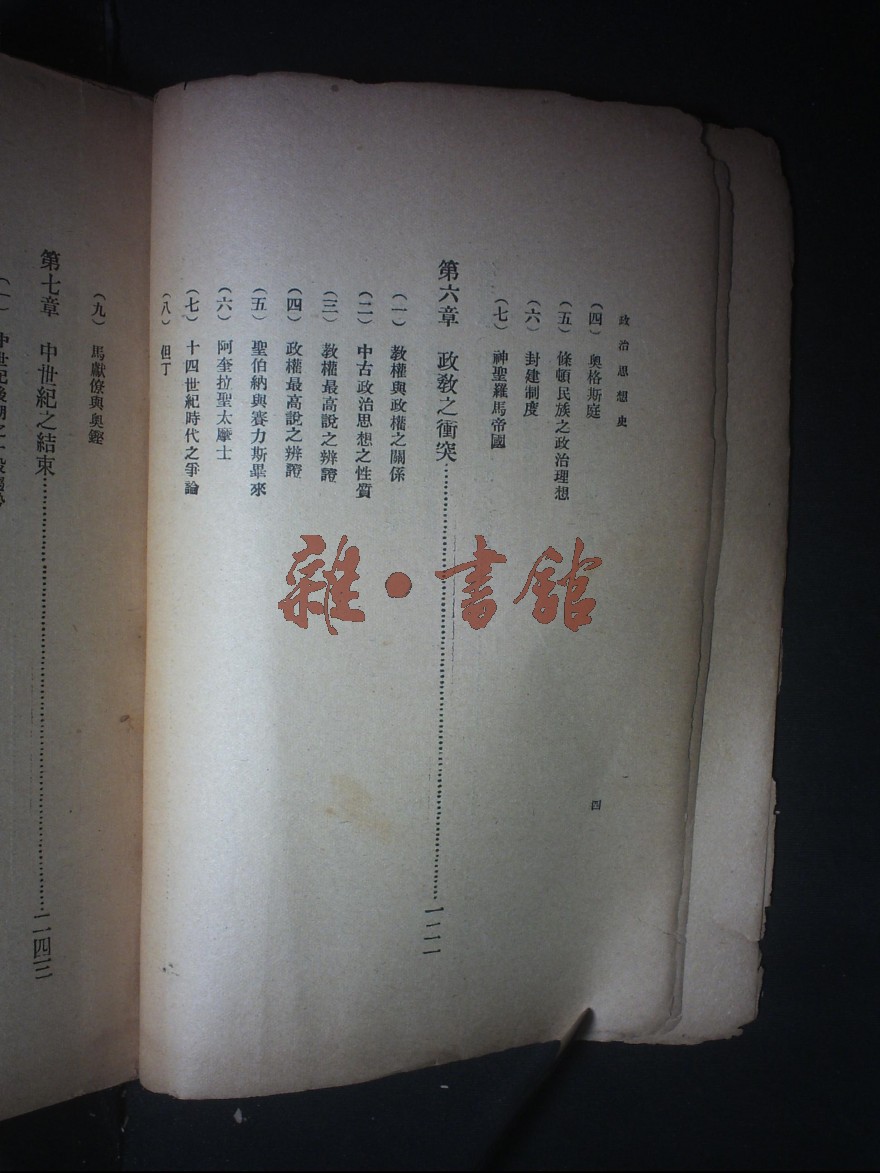 政治思想史
四
（四）奧格斯庭
（五）條頓民族之政治理想
（六）封建制度
（七）神聖羅馬帝國
第六章　政教之衝突……………………
（一）教權與政權之關係
（二）中古政治思想之性質
（三）教權最高說之辨證
（四）政權最高說之辨證
（五）聖伯納與賽力斯畢來
（六）阿奎拉聖太摩士
（七）十四世紀時代之爭論
（八）但丁
（九）馬獻僚與奧鏗
第七章　中世紀之結束……………………
（一）中世紀後期之一般
雜·書館